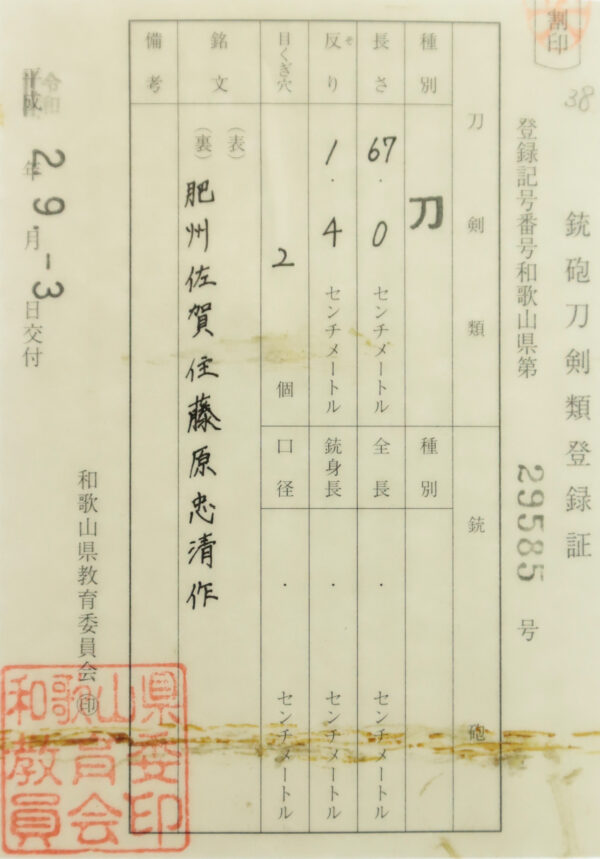 割印
38
銃砲刀剣類登録証
登録記号番号和歌山県第 29585 号
刀剣類
銃砲
種別 刀
種別
長さ 67.0 センチメートル
全長 . センチメートル
反り 1.4 センチメートル
そ
銃身長 . センチメートル
目くぎ穴 2 個
口径 . センチメートル
銘文 (表)
(裏) 肥州佐賀住藤原忠清作
備考
令和
平成 29.-3 年 月 日交付
和歌山県教育委員会 印
和歌山県
教育委
員会印